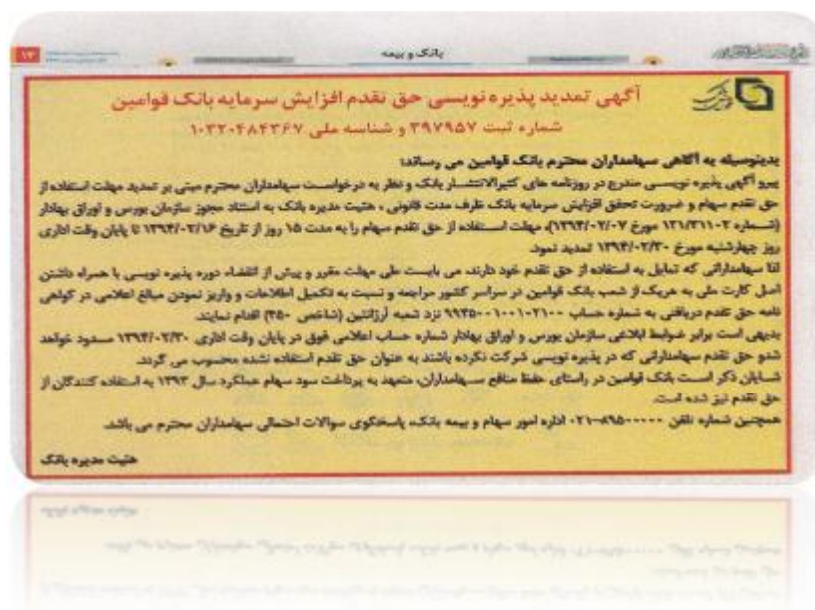 بانک و بیمه
۱۳
آگهی تمدید پذیره نویسی حق تقدم افزایش سرمایه بانک قوامین
شماره ثبت ۳۹۷۹۵۷ و شناسه ملی ۱۰۳۲۰۴۸۴۳۶۷
بدینوسیله به آگاهی سهامداران محترم بانک قوامین می رساند:
پیرو آگهی پذیره نویسی مندرج در روزنامه های کثیرالانتشار بانک و نظر به درخواست سهامداران محترم مبنی بر تمدید مهلت استفاده از
حق تقدم سهام و ضرورت تحقق افزایش سرمایه بانک ظرف مدت قانونی ، هئیت مدیره بانک به استناد مجوز سازمان بورس و اوراق بهادار
(شماره ۱۲۱/۳۱۱۰۲ مورخ ۱۳۹۴/۰۲/۰۷)، مهلت استفاده از حق تقدم سهام را به مدت ۱۵ روز از تاریخ ۱۳۹۴/۰۲/۱۶ تا پایان وقت اداری
روز چهارشنبه مورخ ۱۳۹۴/۰۲/۳۰ تمدید نمود.
لذا سهامدارانی که تمایل به استفاده از حق تقدم خود دارند، می بایست طی مهلت مقرر و پیش از انقضاء دوره پذیره نویسی با همراه داشتن
اصل کارت ملی به هریک از شعب بانک قوامین در سراسر کشور مراجعه و نسبت به تکمیل اطلاعات و واریز نمودن مبالغ اعلامی در گواهی
نامه حق تقدم دریافتی به شماره حساب ۹۹۴۵۰۰۱۰۰۱۰۲۱۰۰ نزد شعبه آرژانتین (شاخص ۴۵۰) اقدام نمایند.
بدیهی است برابر ضوابط ابلاغی سازمان بورس و اوراق بهادار شماره حساب اعلامی فوق در پایان وقت اداری ۱۳۹۴/۰۲/۳۰ مسدود خواهد
شدو حق تقدم سهامدارانی که در پذیره نویسی شرکت نکرده باشند به عنوان حق تقدم استفاده نشده محسوب می گردد.
شایان ذکر است بانک قوامین در راستای حفظ منافع سهامداران، متعهد به پرداخت سود سهام عملکرد سال ۱۳۹۳ به استفاده کنندگان از
حق تقدم نیز شده است.
همچنین شماره تلفن ۸۹۵۰۰۰۰۰-۰۲۱ اداره امور سهام و بیمه بانک، پاسخگوی سوالات احتمالی سهامداران محترم می باشد.
هئیت مدیره بانک